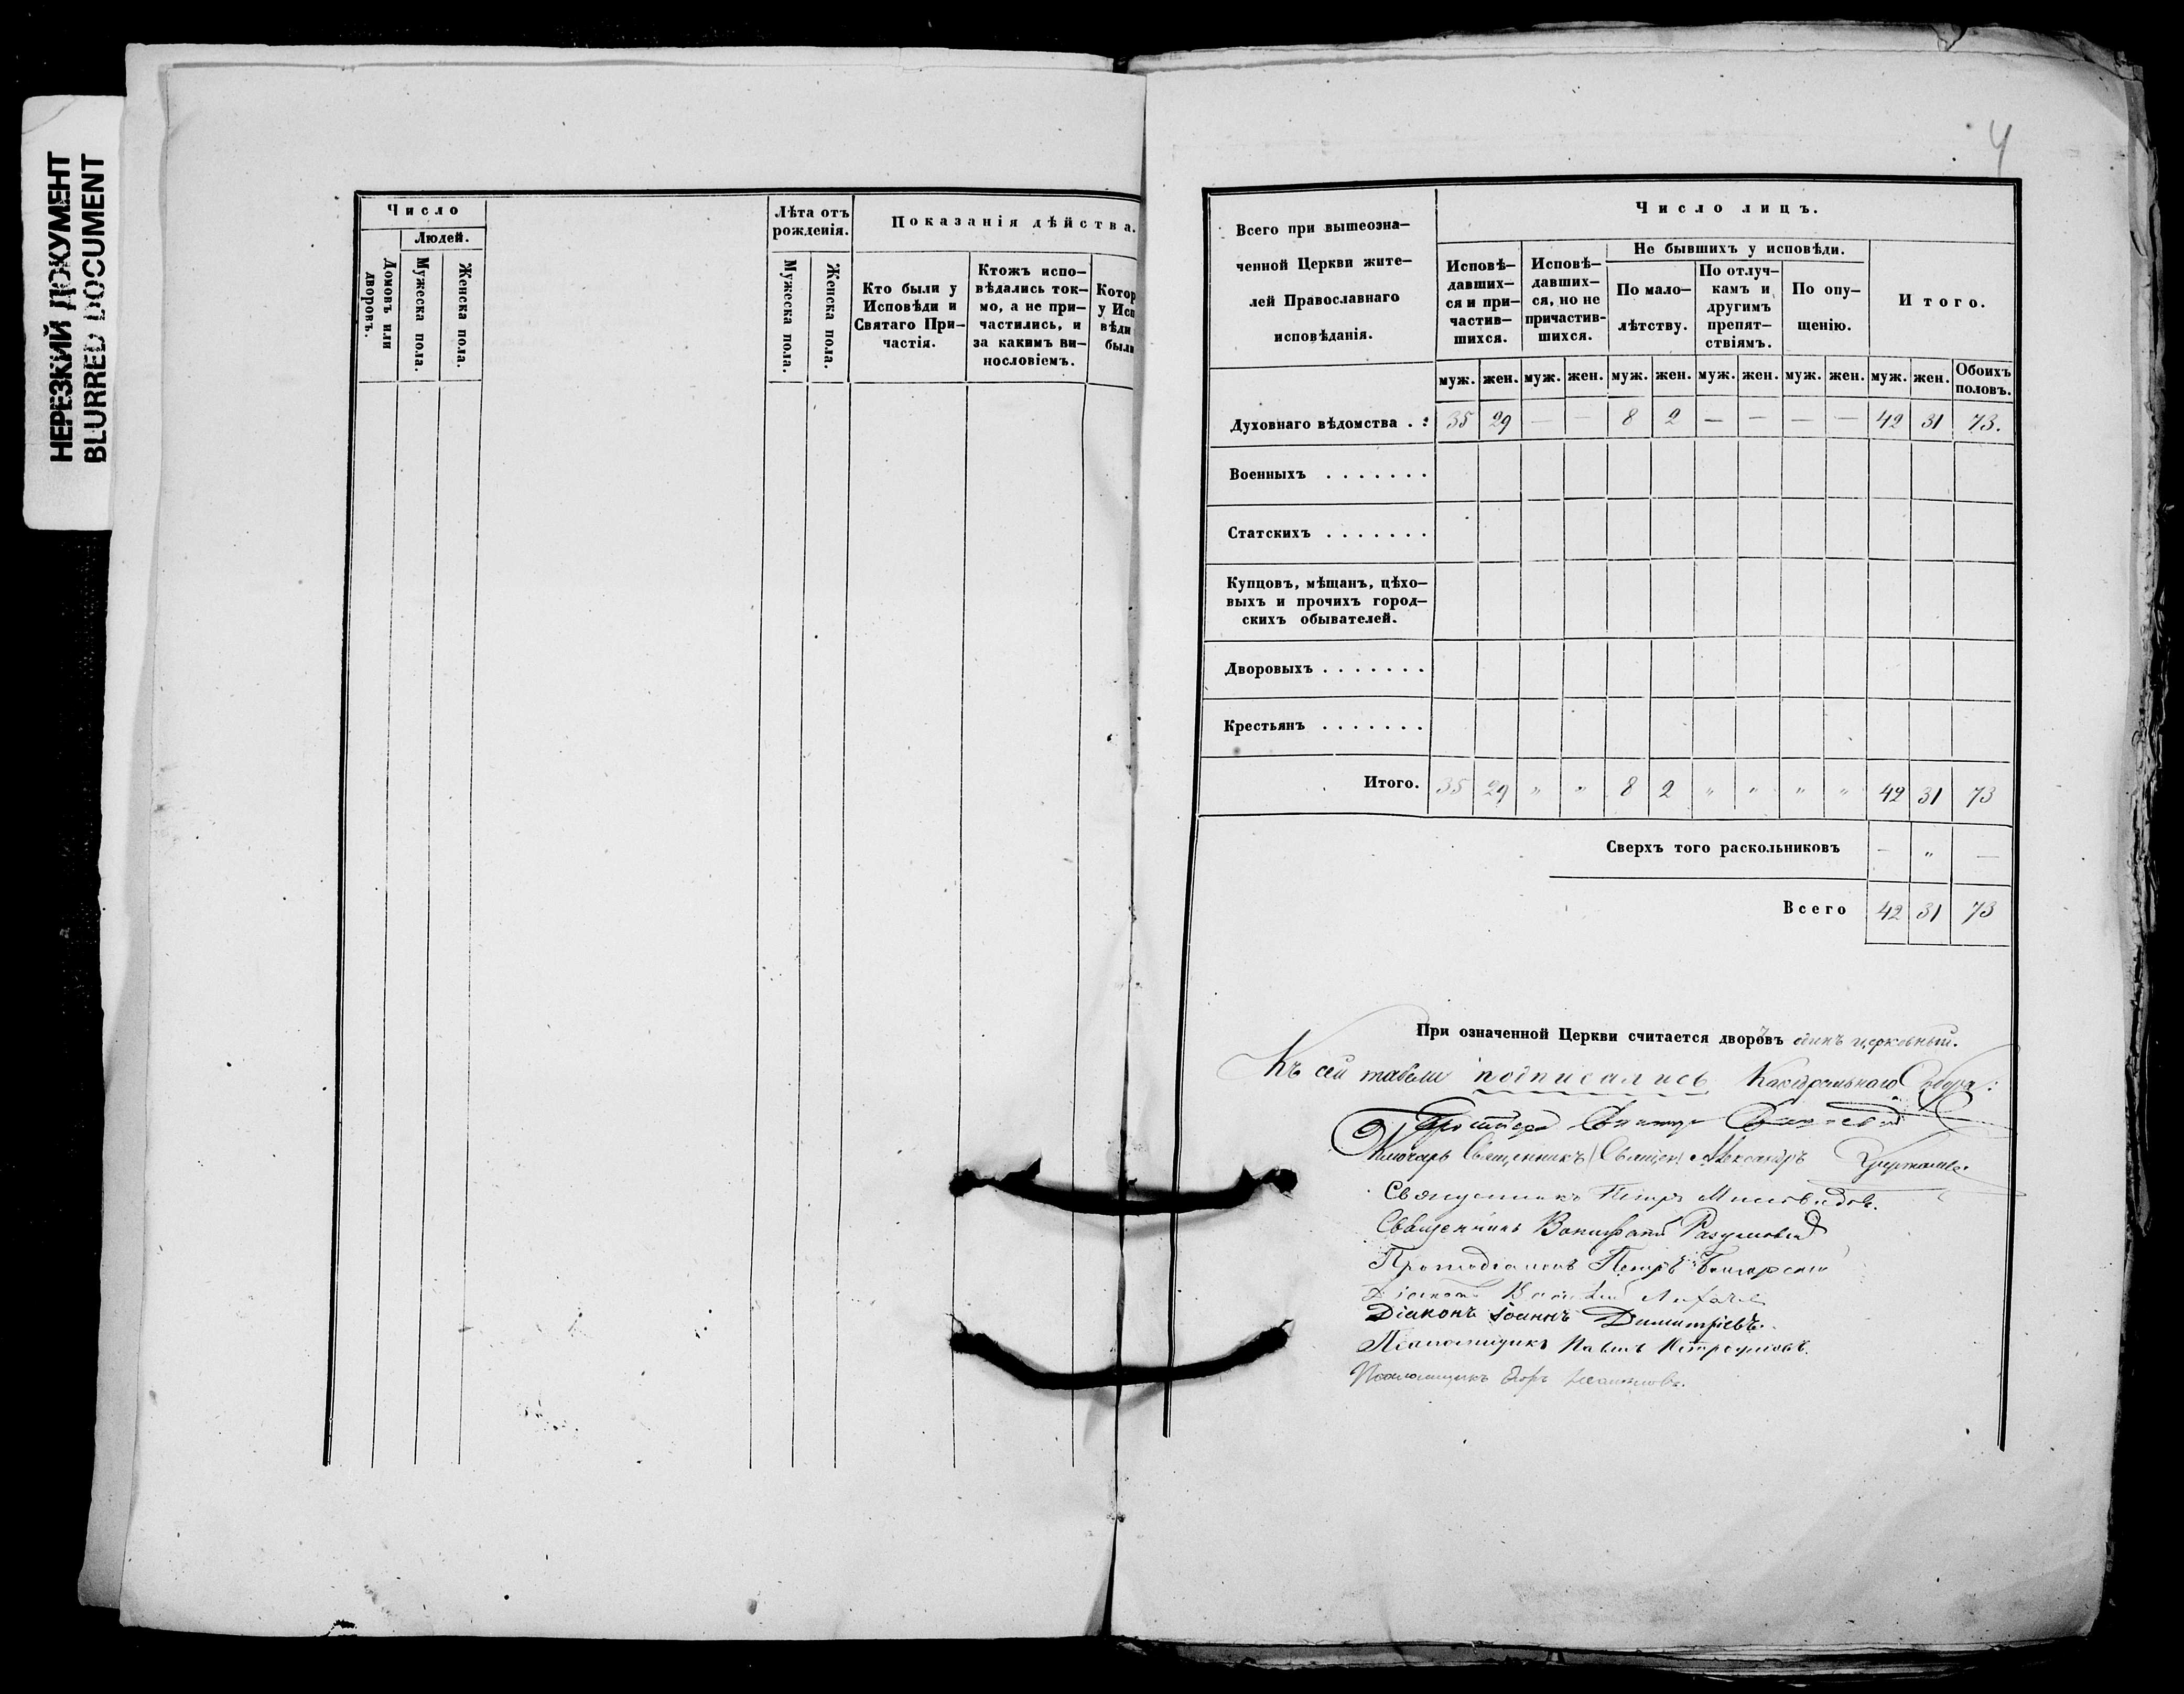 НЕРЕЗКИЙ ДОКУМЕНТ
BLURRED DOCUMENT
Число
Людей.
Домовъ или дворовъ.
Мужеска пола.
Женска пола.
Лѣта отъ рожденія.
Мужеска пола.
Женска пола.
Показанія дѣйства.
Кто были у
Исповѣди и
Святаго При-
частія.
Ктожъ испо-
вѣдались ток-
мо, а не при-
частились, и
за какимъ ви-
нословіемъ.
Котор
у Исп
вѣди
были
4
Всего при вышеозна-
ченной Церкви жите-
лей Православнаго
исповѣданія.
Число лицъ.
Исповѣ-
давших-
ся и при-
частив-
шихся.
Исповѣ-
давших-
ся, но не
причастив-
шихся.
Не бывшихъ у исповѣди.
По мало-
лѣтству.
По отлуч-
камъ и
другимъ
препят-
ствіямъ.
По опу-
щенію.
Итого.
муж. жен. муж. жен. муж. жен. муж. жен. муж. жен. муж. жен. Обоихъ половъ.
Духовнаго вѣдомства . : 35 29 — — 8 2 — — — — 42 31 73.
Военныхъ . . . . . . .
Статскихъ . . . . . . .
Купцовъ, мѣщанъ, цѣхо-
выхъ и прочихъ город-
скихъ обывателей.
Дворовыхъ . . . . . . .
Крестьянъ . . . . . . .
Итого. 35 29 " " 8 2 " " " " 42 31 73
Сверхъ того раскольниковъ — " —
Всего 42 31 73
При означенной Церкви считается дворовъ единъ церковный.
Къ сей табели подписались Каѳедральнаго Собора:
Ключарь Священникъ Александръ
Священникъ Петръ
Священникъ Вонифатій Разумовскій
Протодіаконъ Петръ
Діаконъ Василій
Діаконъ Іоаннъ Димитріевъ.
Псаломщикъ Павелъ
Псаломщикъ